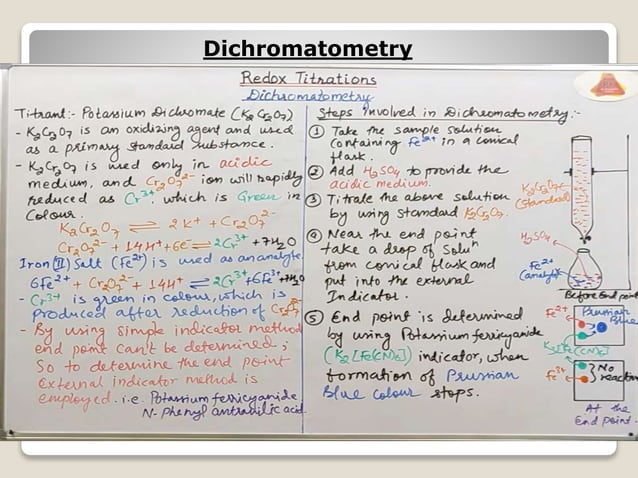 Dichromatometry
Redox Titrations
Dichromatometry
Titrant:- Potassium Dichromate (K2Cr2O7)
- K2Cr2O7 is an oxidizing agent and used
as a primary standard substance.
- K2Cr2O7 is used only in acidic
medium, and Cr2O7²⁻ ion will rapidly
reduced as Cr³⁺, which is Green in
Colour.
K2Cr2O7 ⇌ 2K⁺ + Cr2O7²⁻
Cr2O7²⁻ + 14H⁺ + 6e⁻ ⇌ 2Cr³⁺ + 7H2O
Iron (II) Salt (Fe²⁺) is used as an analyte.
6Fe²⁺ + Cr2O7²⁻ + 14H⁺ ⇌ 2Cr³⁺ + 6Fe³⁺ + 7H2O
- Cr³⁺ is green in colour, which is
produced after reduction of Cr2O7²⁻
- By using simple indicator method
end point can't be determined;
So to determine the end point
External indicator method is
employed. i.e. Potassium ferricyanide
N-Phenyl antranilic acid.
Steps involved in Dichromatometry:-
① Take the sample solution
containing Fe²⁺ in a conical
flask.
② Add H2SO4 to provide the
acidic medium.
③ Titrate the above solution
by using standard K2Cr2O7.
④ Near the end point
take a drop of Soluⁿ
from conical flask and
put into the external
Indicator.
⑤ End point is determined
by using Potassium ferricyanide
(K3[Fe(CN)6]) indicator, when
formation of Prussian
Blue colour stops.
K2Cr2O7
(Standard)
H2SO4
Fe²⁺
(analyte)
Before End point
Fe²⁺
Prussian
Blue
K3[Fe(CN)6]
Fe³⁺
No
reaction
At the
End point.